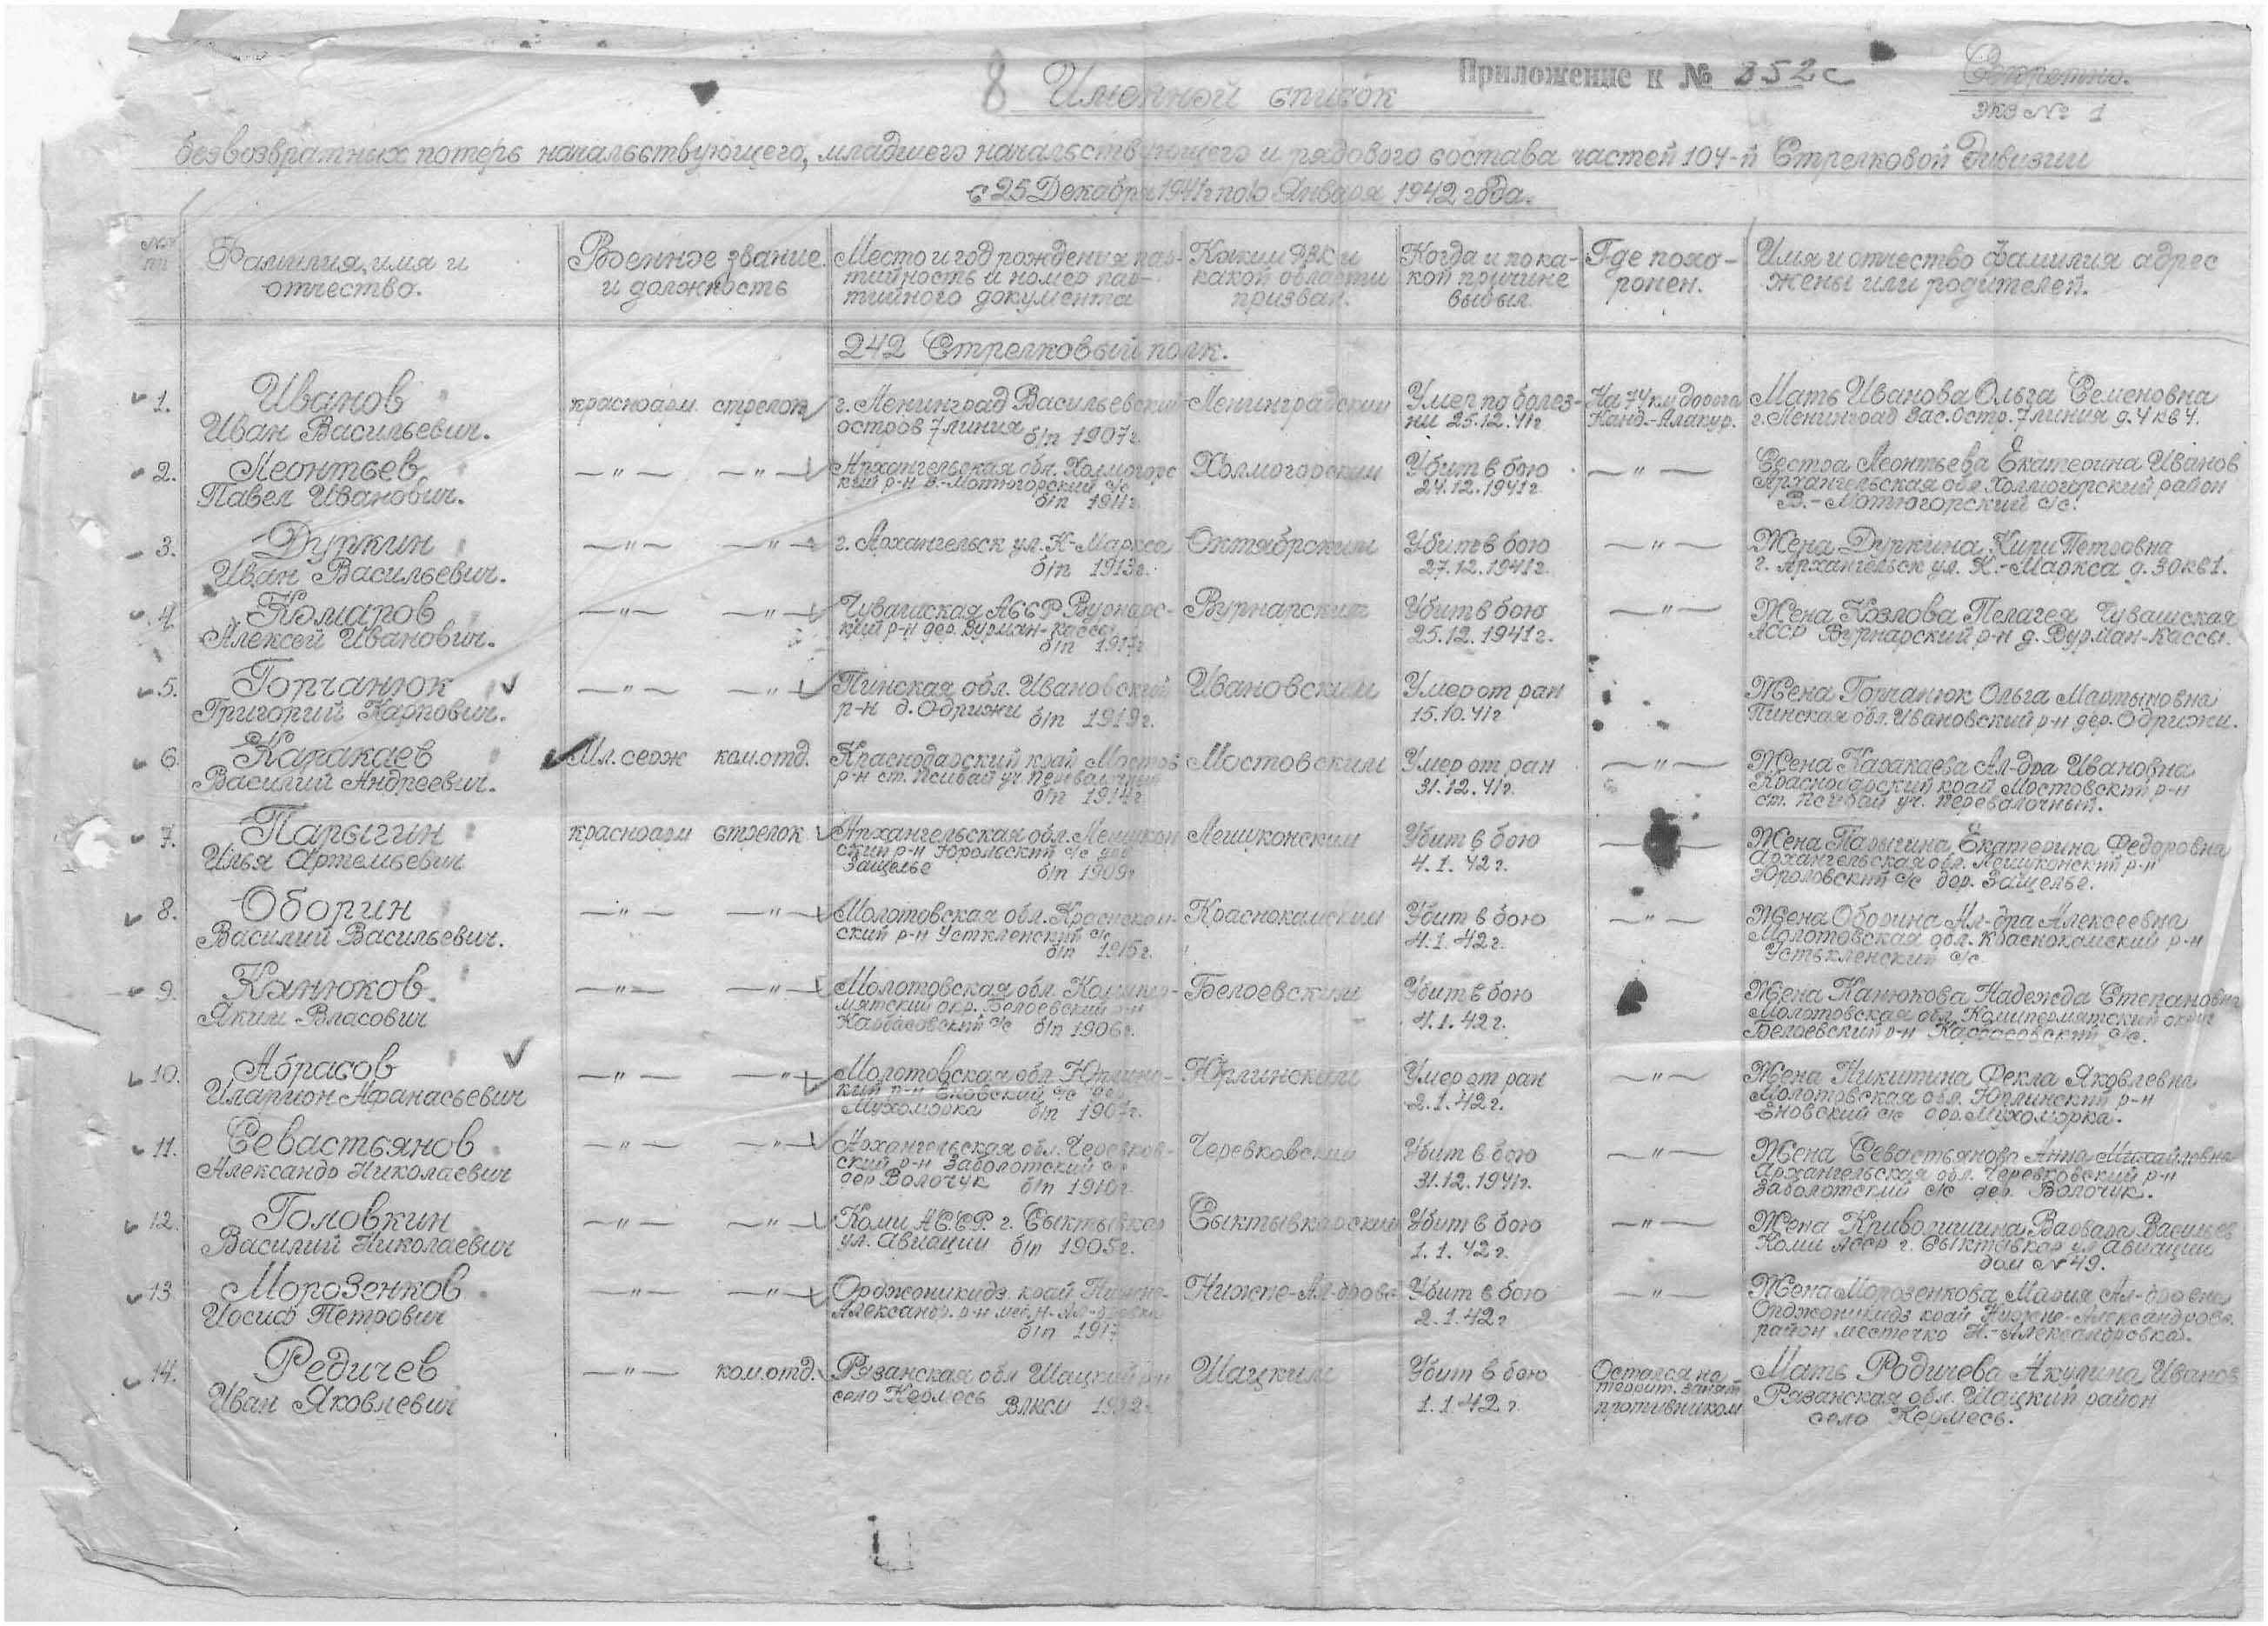 8 Именной список
Приложение к № 352с
Секретно.
Экз № 1
безвозвратных потерь начальствующего, младшего начальствующего и рядового состава частей 104-й Стрелковой Дивизии
с 25 Декабря 1941г по 10 Января 1942 года.
№№ пп
Фамилия, имя и отчество.
Военное звание и должность
Место и год рождения пар-
тийность и номер пар-
тийного документа
Каким РВК и
какой области
призван.
Когда и по ка-
кой причине
выбыл.
Где похо-
ронен.
Имя и отчество фамилия адрес
жены или родителей.
242 Стрелковый полк.
1. Иванов
Иван Васильевич.
красноарм. стрелок
г. Ленинград Васильевский
остров 7 линия б/п 1907г.
Ленинградским
Умер по болез-
ни 25.12.41г.
На 74 км дорога
Канд.-Алакур.
Мать Иванова Ольга Семеновна
г. Ленинград Вас. Остр. 7 линия д. 4 кв 4.
2. Леонтьев
Павел Иванович.
—"— —"—
Архангельская обл. Холмогорс
кий р-н В.-Матигорский с/с
б/п 1911г.
Холмогорским
Убит в бою
24.12.1941г.
—"—
Сестра Леонтьева Екатерина Иванов
Архангельская обл. Холмогорский район
В.-Матигорский с/с.
3. Дуркин
Иван Васильевич.
—"— —"—
г. Архангельск ул. К-Маркса
б/п 1913г.
Октябрьским
Убит в бою
27.12.1941г.
—"—
Жена Дуркина Петровна
г. Архангельск ул. К.-Маркса д. 30 кв 1.
4. Комаров
Алексей Иванович.
—"— —"—
Чувашская АССР Вурнарс-
кий р-н дер. Вурман-Кассы
б/п 1917г
Вурнарским
Убит в бою
25.12.1941г.
—"—
Жена Козлова Пелагея Чувашская
АССР Вурнарский р-н д. Вурман-Кассы.
5. Горчанюк
Григорий Карпович.
—"— —"—
Пинская обл. Ивановский
р-н д. Одрижи б/п 1919г.
Ивановским
Умер от ран
15.10.41г
Жена Горчанюк Ольга Мартыновна
Пинская обл. Ивановский р-н дер. Одрижи.
6. Каракаев
Василий Андреевич.
Мл. серж ком. отд.
Краснодарский край Мостов
р-н ст. Псибай уч. Перевалочный
б/п 1914г
Мостовским
Умер от ран
31.12.41г.
—"—
Жена Каракаева Ал-дра Ивановна
Краснодарский край Мостовский р-н
ст. Псибай уч. Перевалочный.
7. Парыгин
Илья Артемьевич
красноарм стрелок
Архангельская обл. Лешукон
ский р-н Юромский с/с дер
Защелье б/п 1909г
Лешуконским
Убит в бою
4.1.42г.
Жена Парыгина Екатерина Федоровна
Архангельская обл. Лешуконский р-н
с/с дер. Защелье.
8. Оборин
Василий Васильевич.
—"— —"—
Молотовская обл. Краснокам-
ский р-н Усткленский с/с
б/п 1915г.
Краснокамским
Убит в бою
4.1.42г.
—"—
Жена Оборина Ал-дра Алексеевна
Молотовская обл. Краснокамский р-н
Усткленский с/с
9. Канюков.
Яким Власович
—"— —"—
Молотовская обл. Комипер-
мятский окр. Белоевский р-н
с/с б/п 1906г.
Белоевским
Убит в бою
4.1.42г.
Жена Канюкова Надежда Степановна
Молотовская обл. Комипермятский округ
Белоевский р-н с/с.
10. Абрасов
Иларион Афанасьевич
—"— —"—
Молотовская обл. Юрлинс-
кий р-н с/с дер
Мухоморка б/п 1907г.
Юрлинским
Умер от ран
2.1.42г.
—"—
Жена Никитина Фекла Яковлевна
Молотовская обл. Юрлинский р-н
с/с дер. Мухоморка.
11. Севастьянов
Александр Николаевич
—"— —"—
Архангельская обл. Черевков-
ский р-н Заболотский с/с
дер Волочук б/п 1910г.
Черевковский
Убит в бою
31.12.1941г.
—"—
Жена Севастьянова Анна Михайловна
Архангельская обл. Черевковский р-н
Заболотский с/с дер. Волочук.
12. Головкин
Василий Николаевич
—"— —"—
Коми АССР. г. Сыктывкар
ул. Авиации б/п 1905г.
Сыктывкарским
Убит в бою
1.1.42г.
—"—
Жена Варвара Васильев
Коми АССР г. Сыктывкар ул Авиации
дом №49.
13. Морозенков
Иосиф Петрович
—"— —"—
Орджоникидз. край Нижне-
Александр. р-н мес. Н-Ал-дровка
б/п 1917
Нижне-Ал-дров
Убит в бою
2.1.42г
—"—
Жена Морозенкова Мария Ал-дровна
Орджоникидз край Нижне-Александров.
район местечко Н.-Александровка.
14. Редичев
Иван Яковлевич
—"— ком.отд.
Рязанская обл Шацкий р-н
село Кермесь ВЛКСМ
Шацким
Убит в бою
1.1.42г.
Остался на
террит. занят
противником
Мать Родичева Акулина Иванов
Рязанская обл. Шацкий район
село Кермесь.